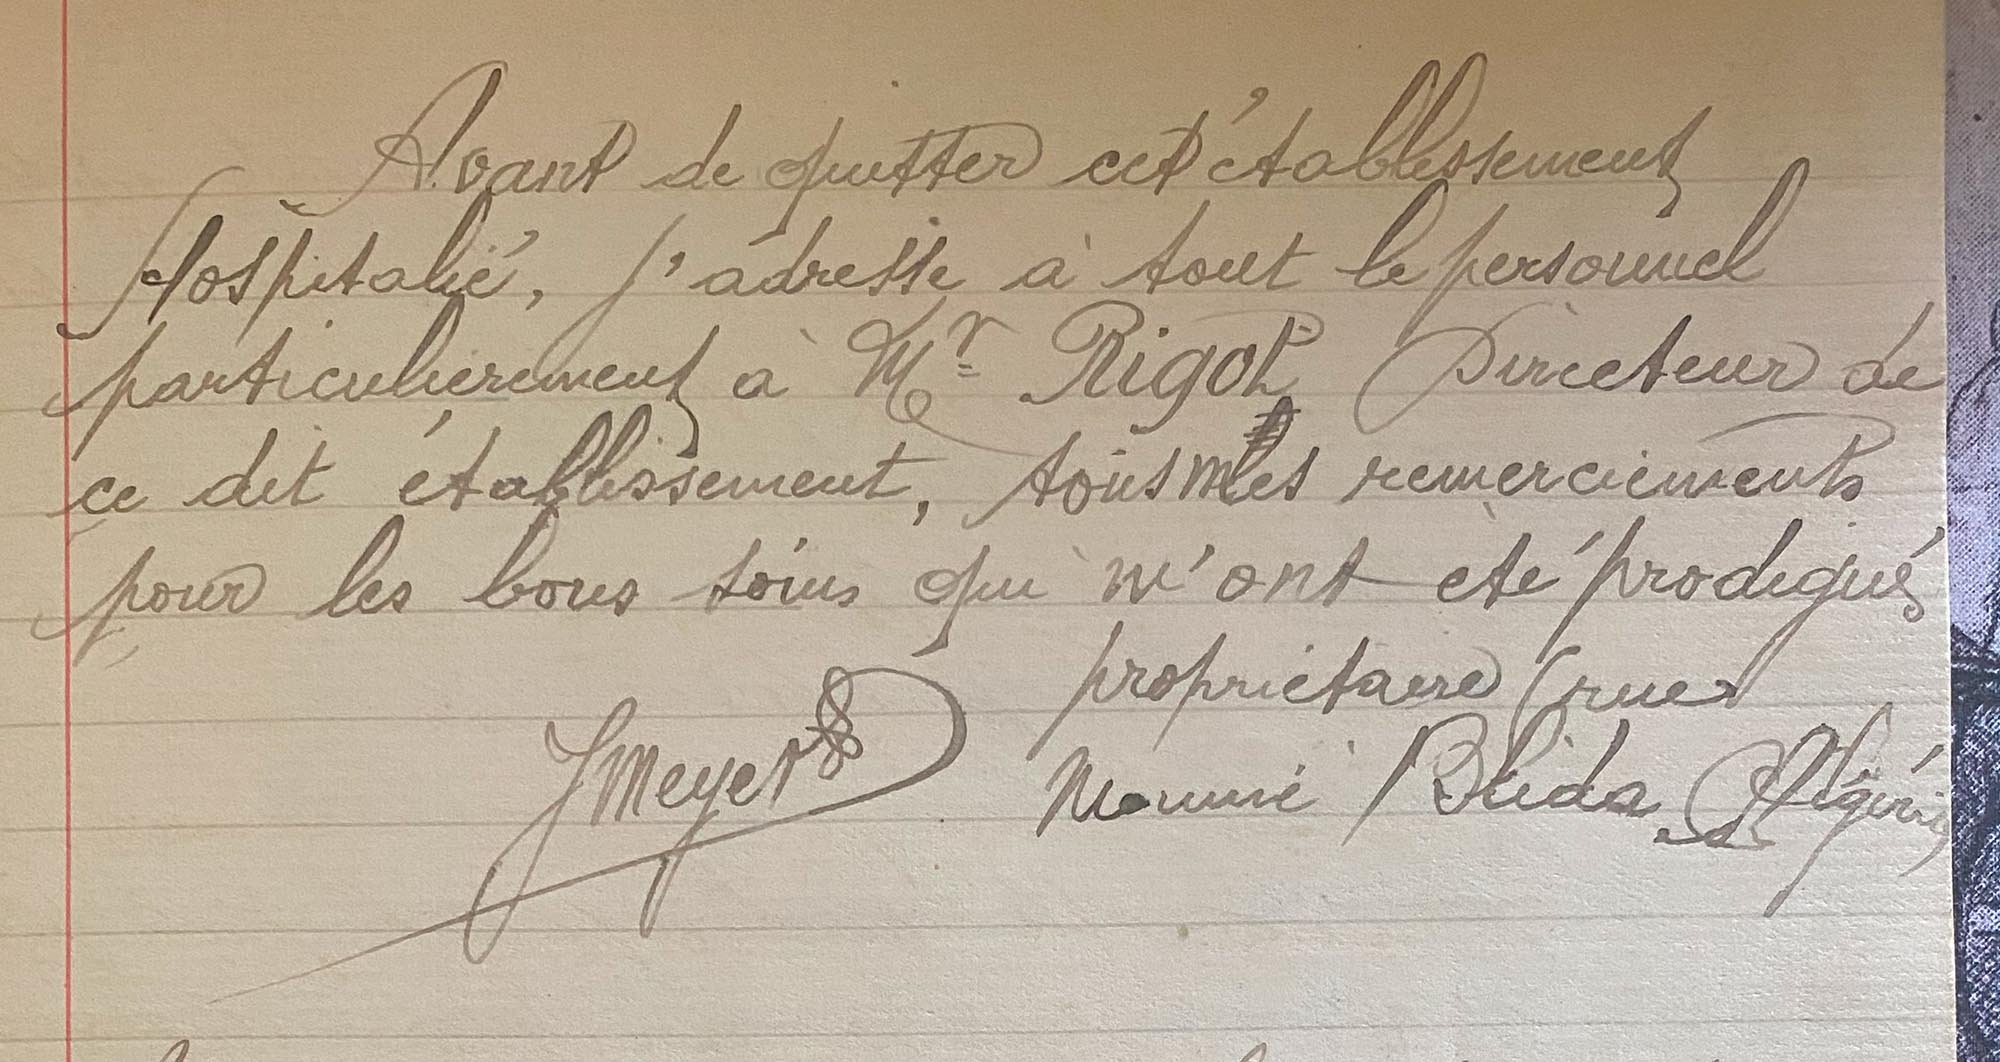 Avant de quitter cet établissement
Hospitalié, j'adresse à tout le personnel
particulièrement à Mr Rigot Directeur de
ce dit établissement, tous mes remerciements
pour les bons soins qui m'ont été prodigués
propriétaire rue
JMeyer Blida Algérie